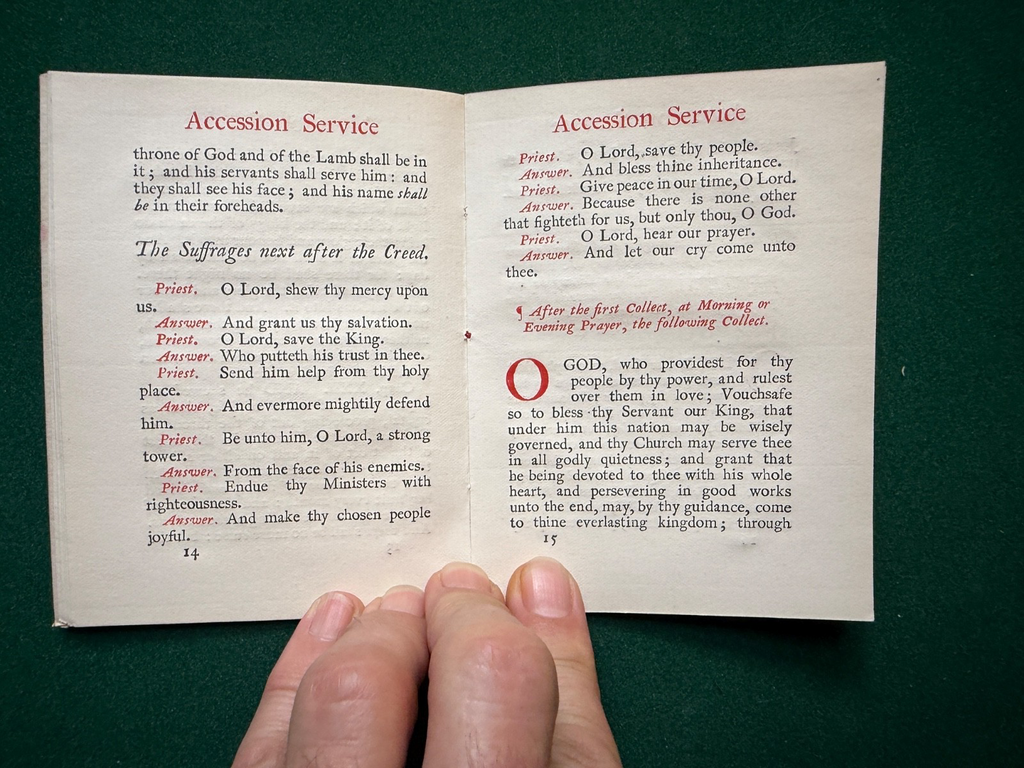 Accession Service
throne of God and of the Lamb shall be in
it; and his servants shall serve him: and
they shall see his face; and his name shall
be in their foreheads.
The Suffrages next after the Creed.
Priest. O Lord, shew thy mercy upon
us.
Answer. And grant us thy salvation.
Priest. O Lord, save the King.
Answer. Who putteth his trust in thee.
Priest. Send him help from thy holy
place.
Answer. And evermore mightily defend
him.
Priest. Be unto him, O Lord, a strong
tower.
Answer. From the face of his enemies.
Priest. Endue thy Ministers with
righteousness.
Answer. And make thy chosen people
joyful.
14
Accession Service
Priest. O Lord, save thy people.
Answer. And bless thine inheritance.
Priest. Give peace in our time, O Lord.
Answer. Because there is none other
that fighteth for us, but only thou, O God.
Priest. O Lord, hear our prayer.
Answer. And let our cry come unto
thee.
¶ After the first Collect, at Morning or
Evening Prayer, the following Collect.
O GOD, who providest for thy
people by thy power, and rulest
over them in love; Vouchsafe
so to bless thy Servant our King, that
under him this nation may be wisely
governed, and thy Church may serve thee
in all godly quietness; and grant that
he being devoted to thee with his whole
heart, and persevering in good works
unto the end, may, by thy guidance, come
to thine everlasting kingdom; through
15